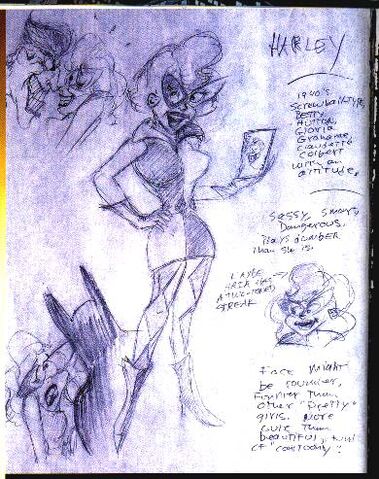 HARLEY
1940's
screwball type,
BETTY
HUTTON,
Gloria
Grahame,
Claudette
Colbert
with an
attitude.
Sassy, smart,
Dangerous.
Plays dumber
than she is.
MAYBE
HAIR HAS
A TWO-TONED
STREAK
Face might
be rounder,
Funnier than
other "pretty"
girls. More
cute than
beautiful, kind
of "cartoony".